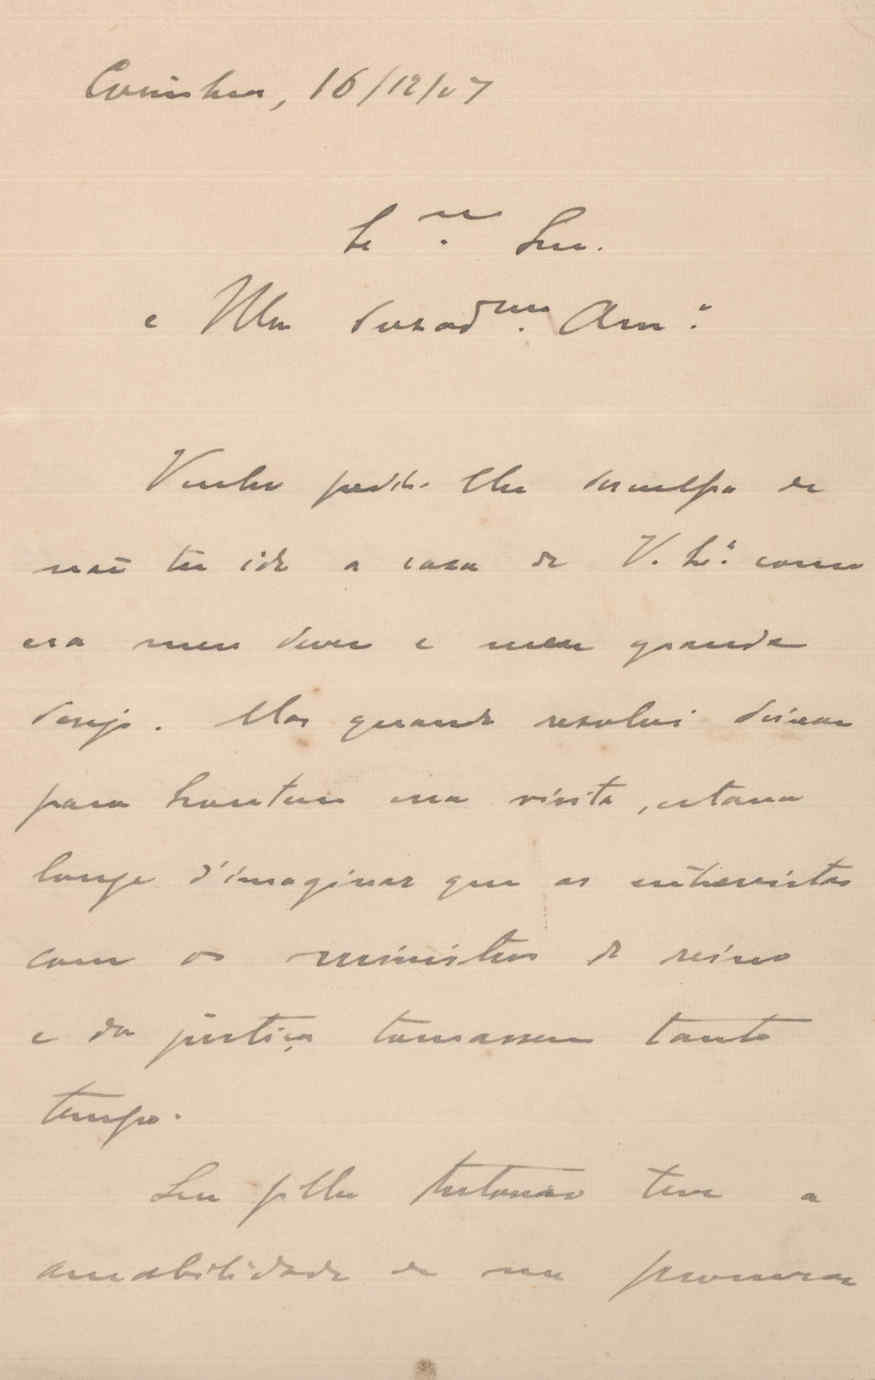 Coimbra, 16/12/07
Ex.mo Snr.
e Meu Presad.mo Am.o
Venho pedir-lhe desculpa de
não ter ido a casa de V. Ex.a como
era meu dever e meu grande
desejo. Mas quando resolvi deixar
para hontem essa visita, estava
longe d'imaginar que as entrevistas
com os ministros do reino
e da justiça tomassem tanto
tempo.
Seu filho Antonio teve a
amabilidade de me procurar